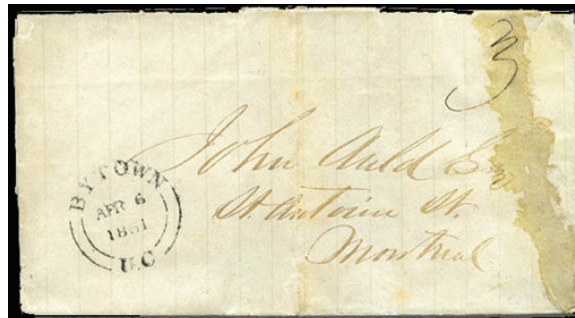 3
John Auld Esqr
St. Antoine St.
Montreal
BYTOWN
APR 6
1851
U.C